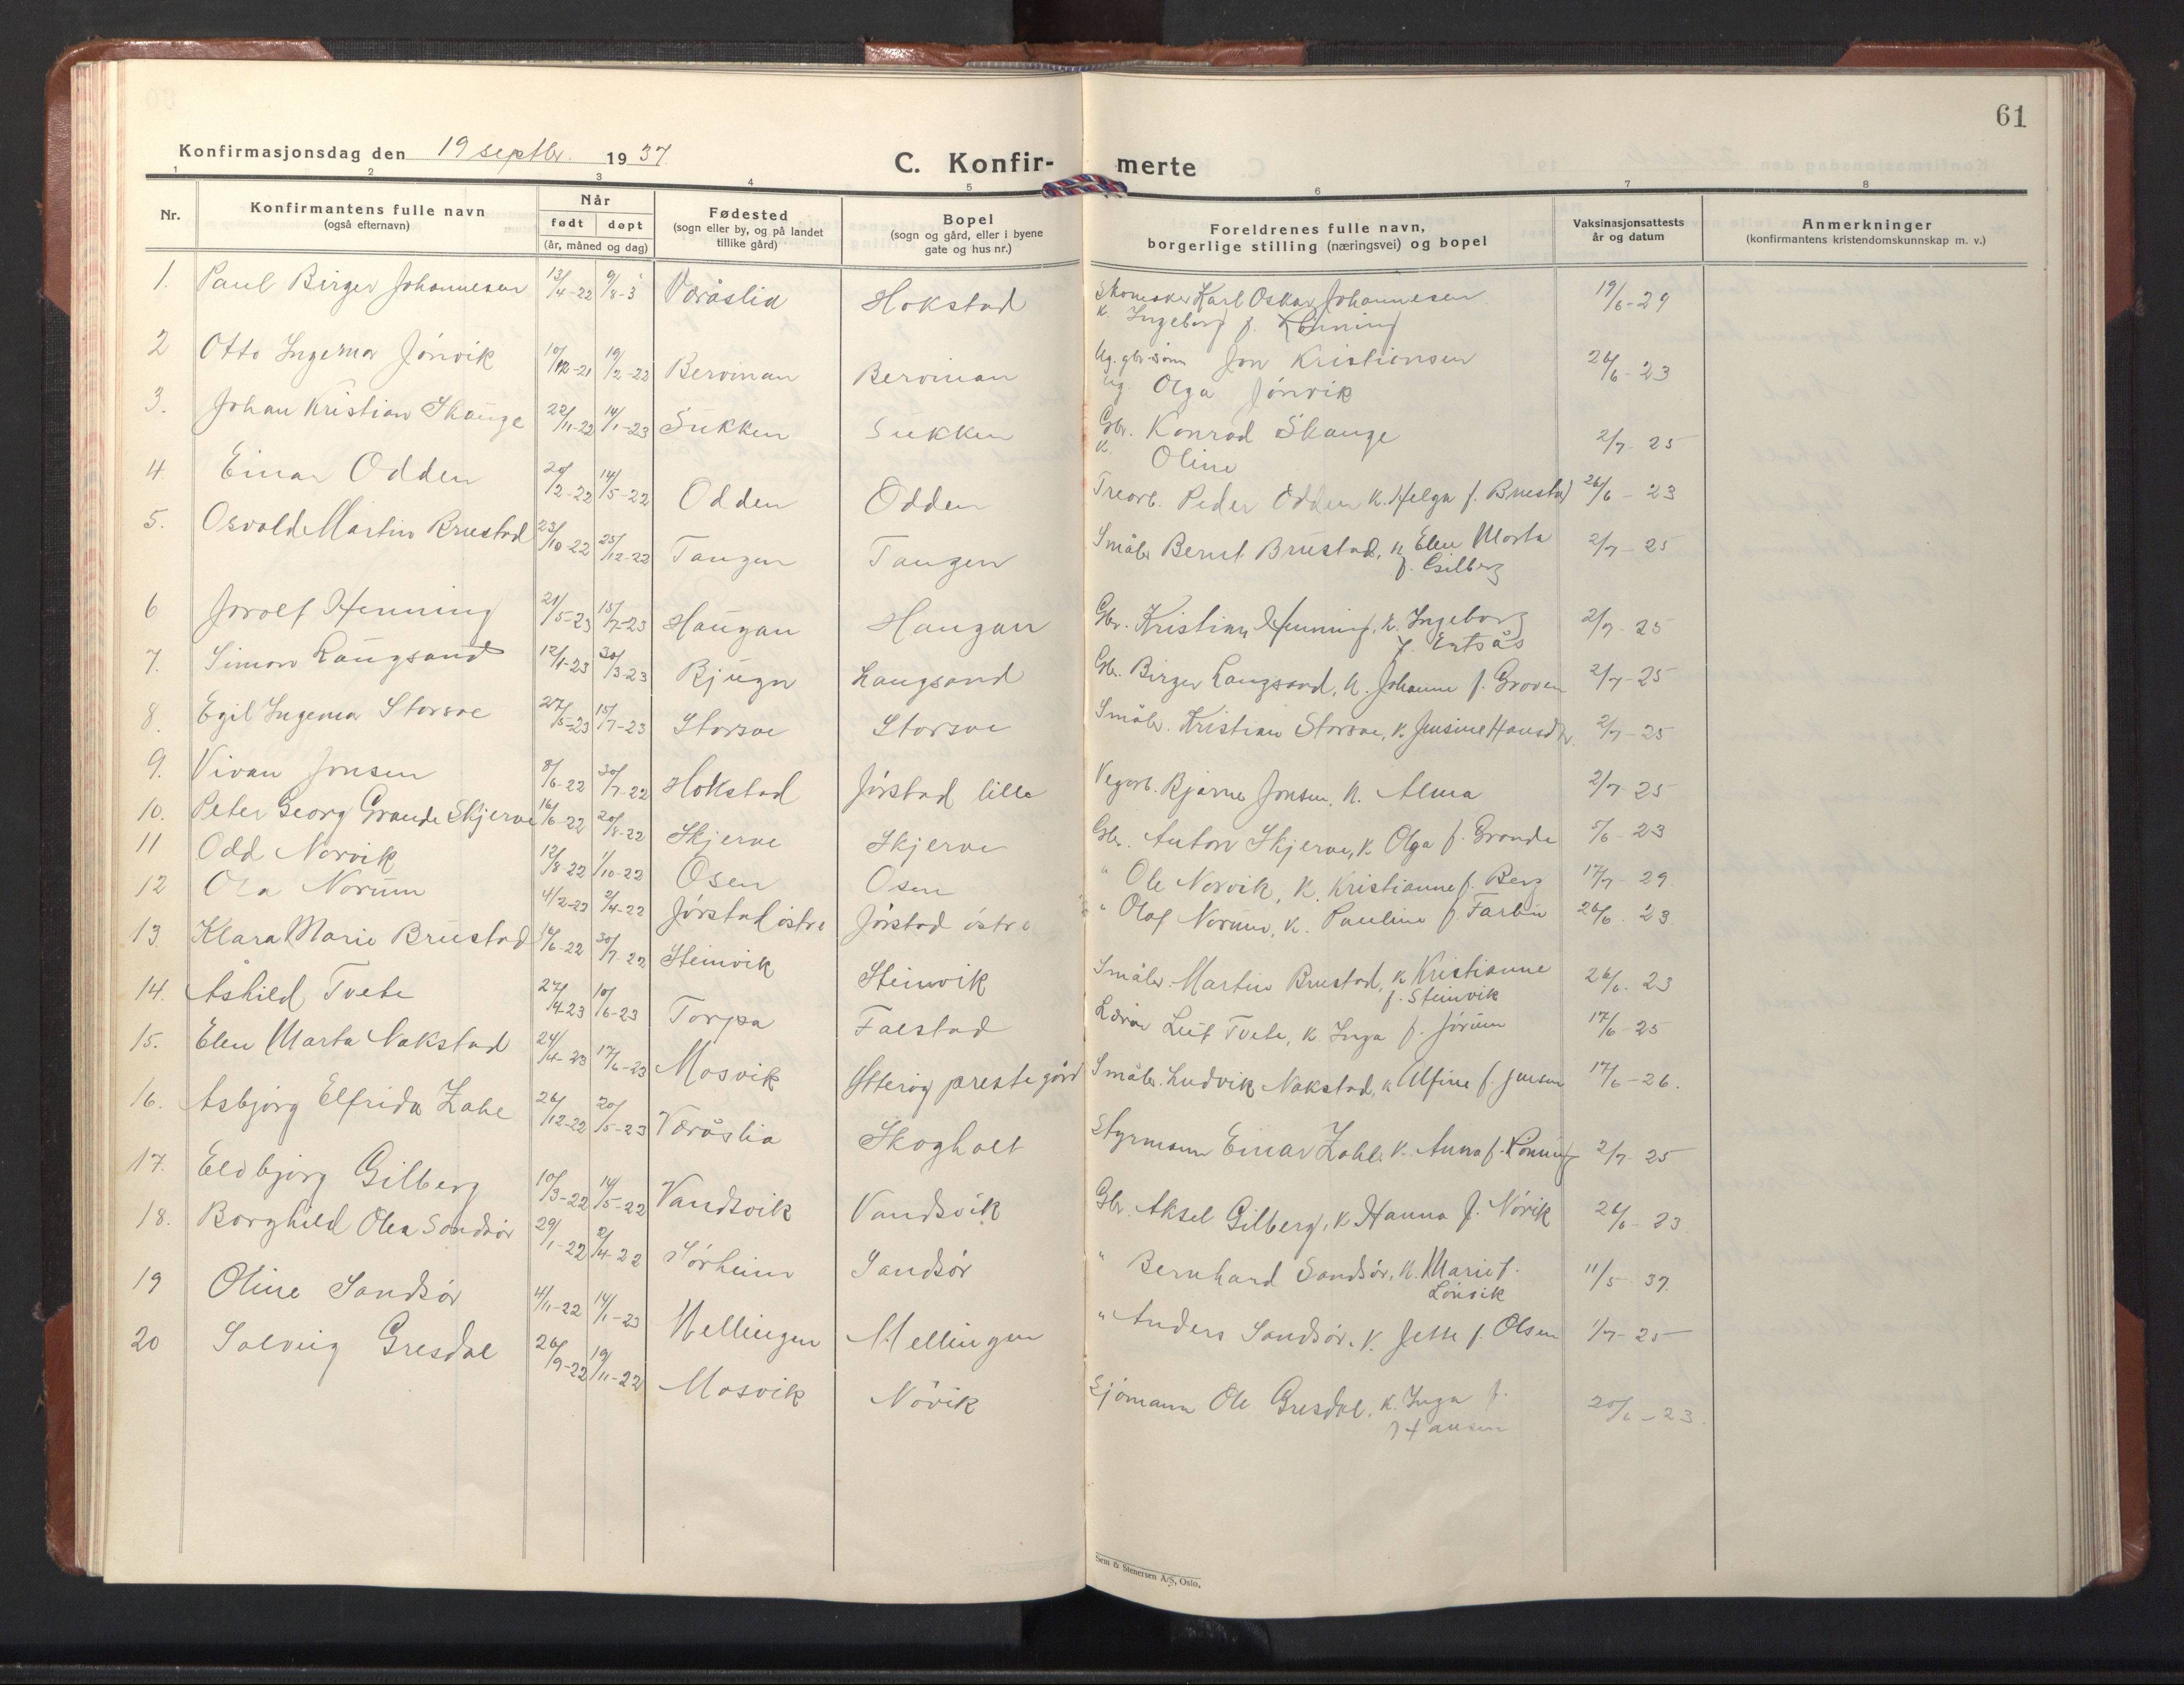 61
Konfirmasjonsdag den 19 septbr. 1937.
C. Konfir- merte
1 2 3 4 5 6 7 8
Nr.
Konfirmantens fulle navn
(også efternavn)
Når
født døpt
(år, måned og dag)
Fødested
(sogn eller by, og på landet
tillike gård)
Bopel
(sogn og gård, eller i byene
gate og hus nr.)
Foreldrenes fulle navn,
borgerlige stilling (næringsvei) og bopel
Vaksinasjonsattests
år og datum
Anmerkninger
(konfirmantens kristendomskunnskap m. v.)
1. Paul Birger Johannesen 13/4-22 9/8-3 Våråslia Hokstad Skomaker Karl Oskar Johannesen 19/6-29
k. Ingeborg f. Rönning
2 Otto Ingemar Jörvik 10/12-21 19/2-22 Beroman Beroman Ug. gbr-sönn Jon Kristiansen 26/6-23
ug. Olga Jörvik
3. Johan Kristian Skauge 22/11-22 14/1-23 Sukken Sukken Gbr. Konrad Skauge 2/7-25
k. Oline
4. Einar Odden 20/2-22 14/5-22 Odden Odden Trearb. Peder Odden k. Helga f. Brustad 26/6-23
5. Osvald Martin Brustad 23/10-22 25/12-22 Tangen Tangen Småbr Bernt Brustad, k Elen Marta 2/7-25
f. Gilberg
6 Jorolf Henning 21/5-23 15/7-23 Haugan Haugan Gbr. Kristian Henning, k. Ingeborg 2/7-25
f. Ertsås
7. Simon Langsand 12/1-23 30/3-23 Bjugn Langsand Gbr. Birger Langsand, k. Johanne f. Groven 2/7-25
8. Egil Ingemar Storsve 27/5-23 15/7-23 Storsve Storsve Småbr. Kristian Storsve, k. Jensine Hansdtr. 2/7-25
9. Vivan Jonsen 8/6-22 30/7-22 Hokstad Jörstad lille Vegarb. Bjarne Jonsen, k. Alma 2/7-25
10. Peter Georg Grande Skjerve 16/6-22 20/8-22 Skjerve Skjerve Gbr. Anton Skjerve, k. Olga f. Grande 5/6-23
11 Odd Norvik 12/8-22 1/10-22 Osen Osen " Ole Norvik, k. Kristianne f. Berg 17/7-29
12 Ola Norum 4/2-22 2/4-22 Jörstad östre Jörstad östre " Olaf Norum, k. Pauline f. Farbu 26/6-23
13. Klara Marie Brustad 14/6-22 30/7-22 Steinvik Steinvik Småbr. Martin Brustad, k Kristianne 26/6-23
f. Steinvik
14. Åshild Tvete 27/4-23 10/6-23 Torpa Falstad Lærer Leif Tvete, k. Inga f. Jörum 17/6-25
15. Elen Marta Nakstad 24/4-23 17/6-23 Mosvik Ytteröy prestegård Småbr. Ludvik Nakstad, k Alfine f. Jensen 17/6-26.
16. Asbjörg Elfrida Zahl 26/12-22 20/5-23 Våråslia Skogholt Styrmann Einar Zahl. k. Anna f. Rönning 2/7-25
17. Eldbjörg Gilberg 10/3-22 14/5-22 Vandsvik Vandsvik Gbr. Aksel Gilberg, k Hanna f. Nörik 26/6-23
18. Borghild Olea Sandsör 29/1-22 2/4-22 Sörheim Sandsör " Bernhard Sandsör, k. Marie f. 11/5-37.
Lönvik
19 Oline Sandsör 4/11-22 14/1-23 Mellingen Mellingen " Anders Sandsör, k. Jette f. Olsen 1/7-25
20 Solveig Gresdal 26/9-22 19/11-22 Mosvik Növik Sjömann Ole Gresdal, k. Inga f. 20/6-23.
Hansen
Sem & Stenersen A/S, Oslo.